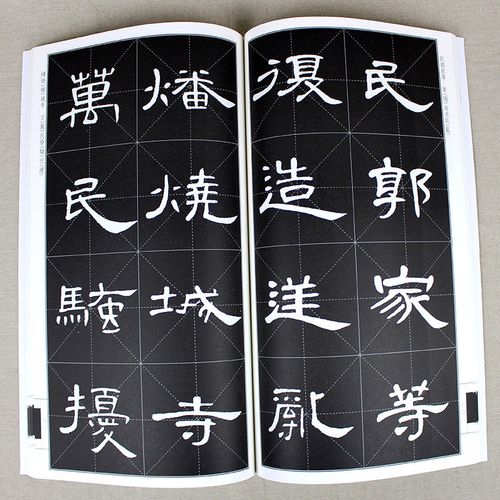 民郭家等
復造逆亂
燔燒城寺
萬民騷擾